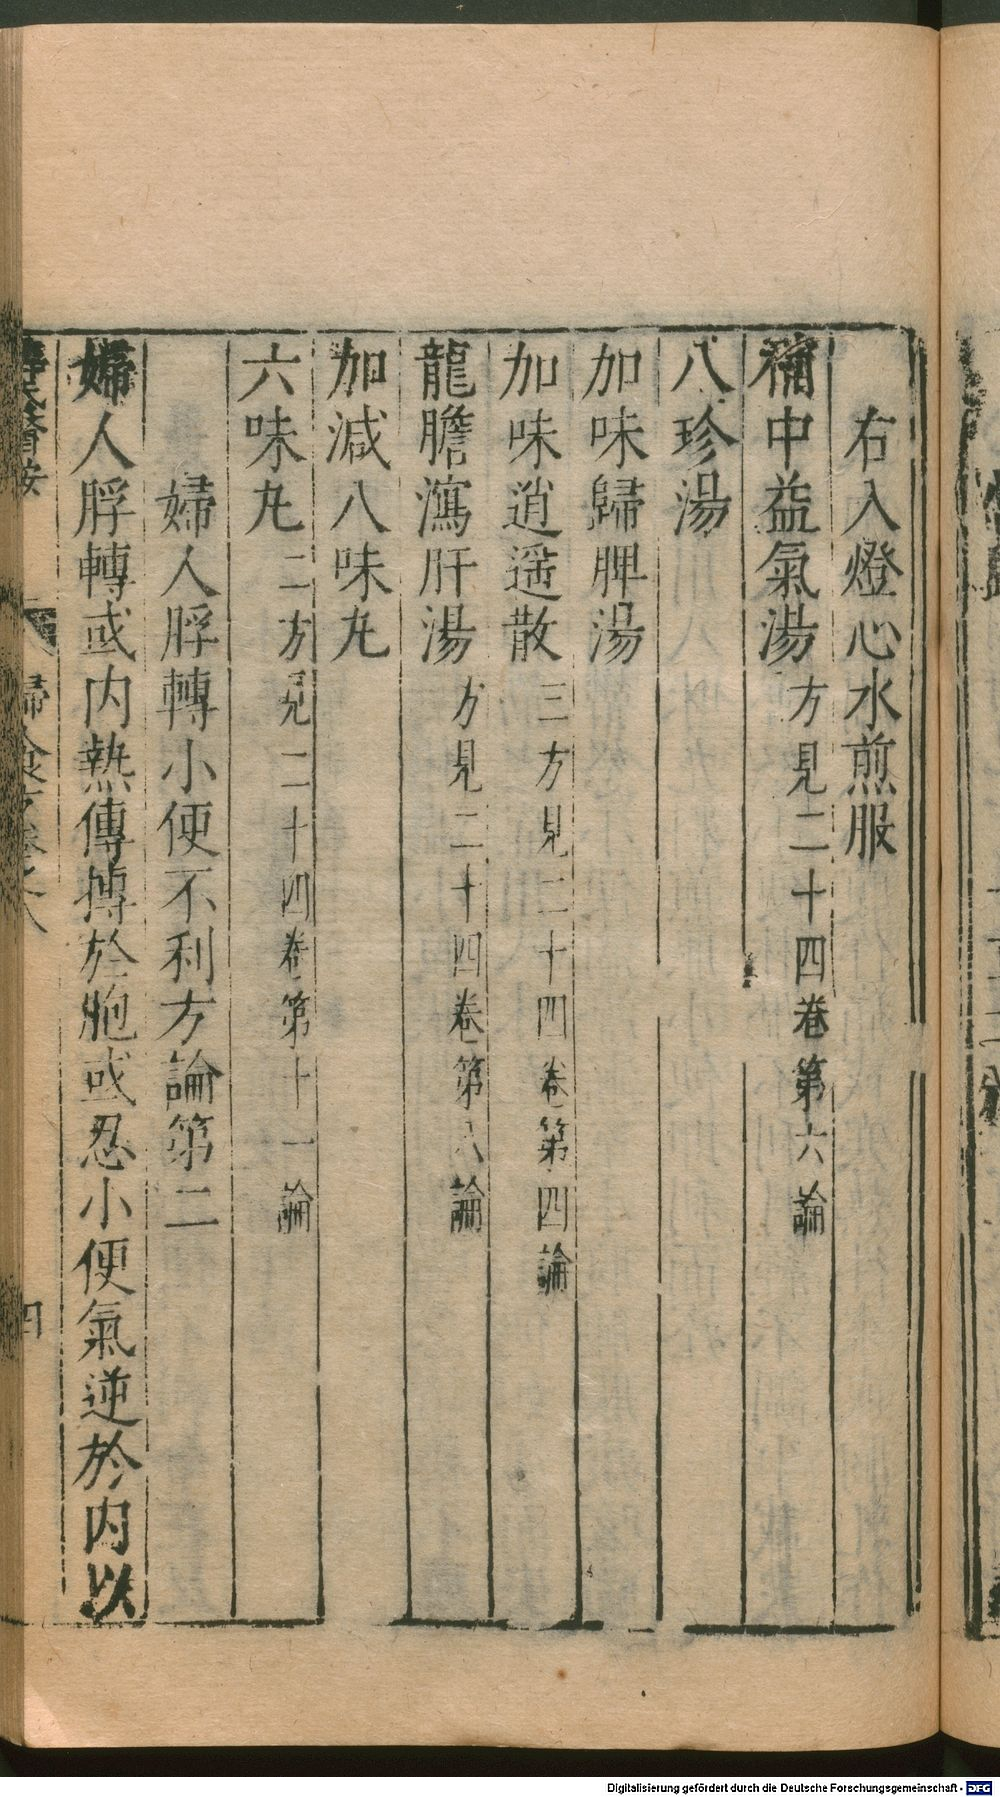 右入燈心水煎服
補中益氣湯方見二十四卷第六論
八珍湯
加味歸脾湯
加味逍遥散三方見二十四卷第四論
龍膽瀉肝湯方見二十四卷第八論
加減八味丸
六味丸二方見二十四卷第十一論
婦人脬轉小便不利方論第二
婦人脬轉或内熱傳搏於胞或忍小便氣逆於内以
醫按
婦人良方卷之八
四
Digitalisierung gefördert durch die Deutsche Forschungsgemeinschaft - DFG